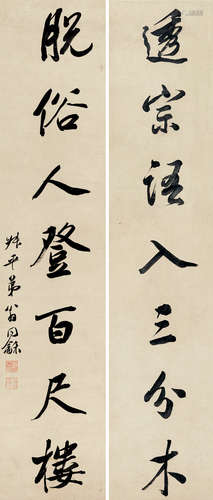 透宗語入三分木
脱俗人登百尺樓
叔平弟翁同龢